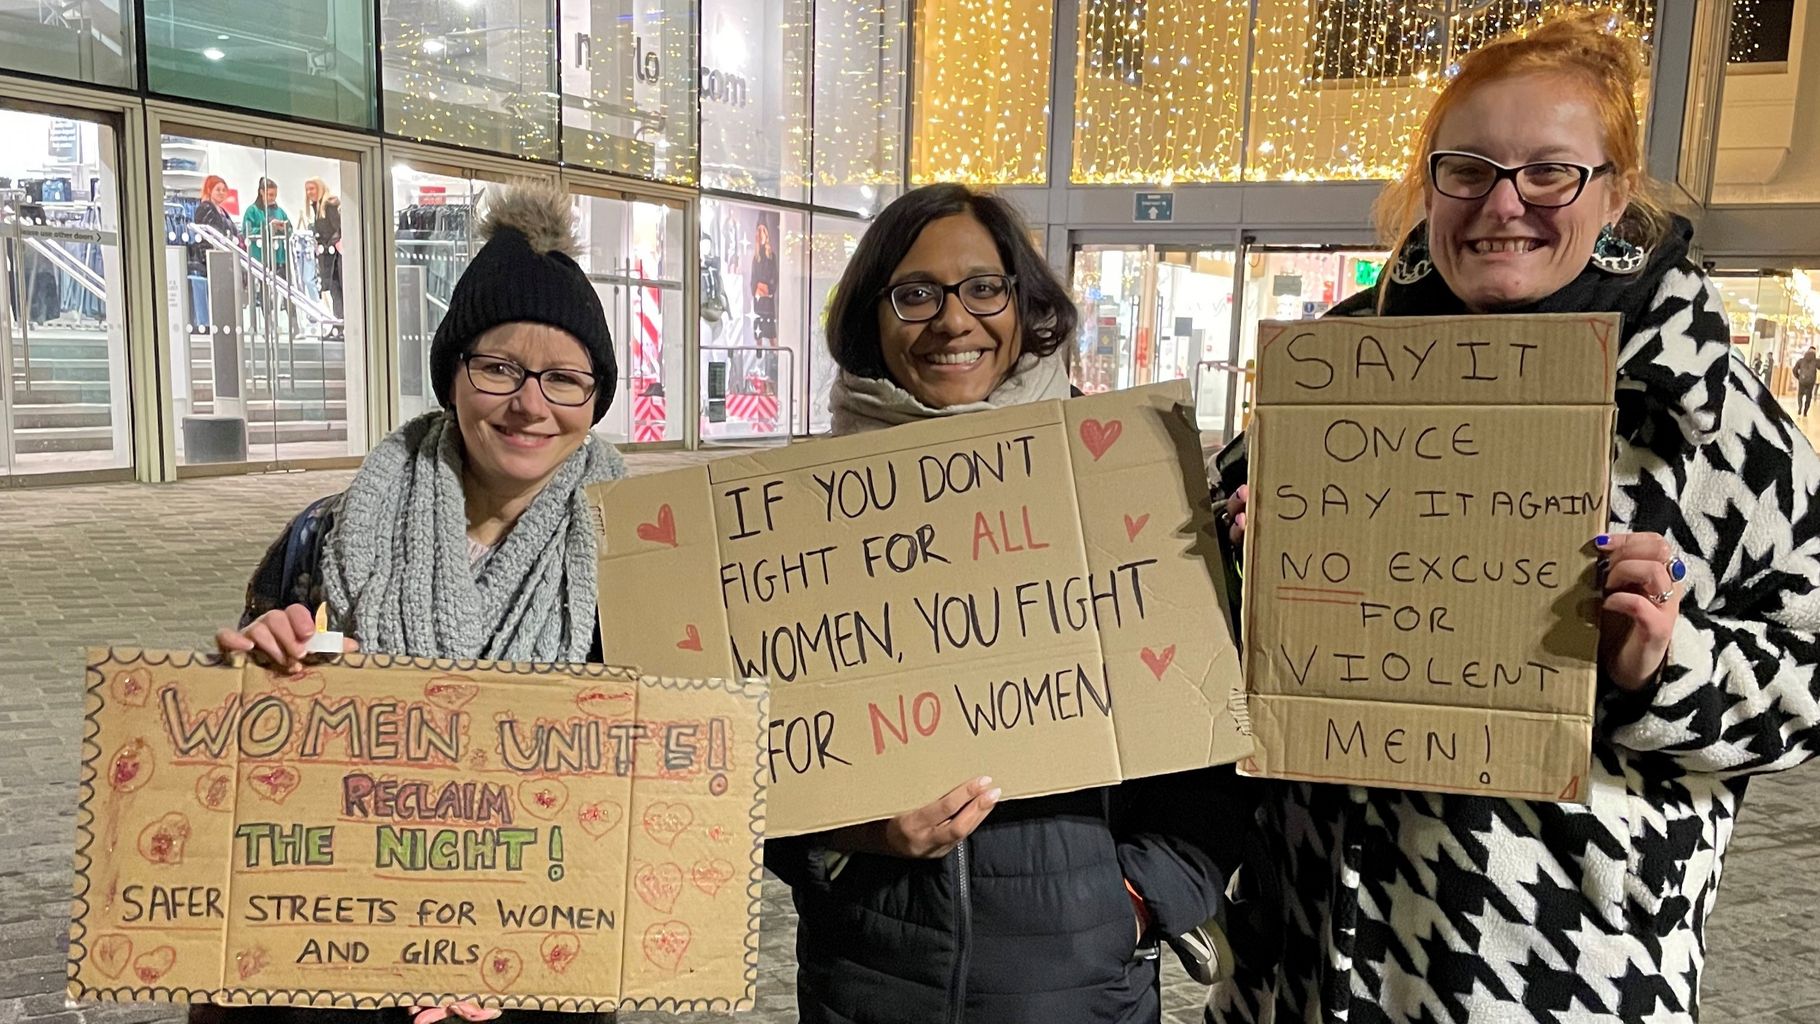 WOMEN UNITE!
RECLAIM
THE NIGHT!
SAFER STREETS FOR WOMEN
AND GIRLS
IF YOU DON'T
FIGHT FOR ALL
WOMEN, YOU FIGHT
FOR NO WOMEN
SAY IT
ONCE
SAY IT AGAIN
NO EXCUSE
FOR
VIOLENT
MEN!
use other doors